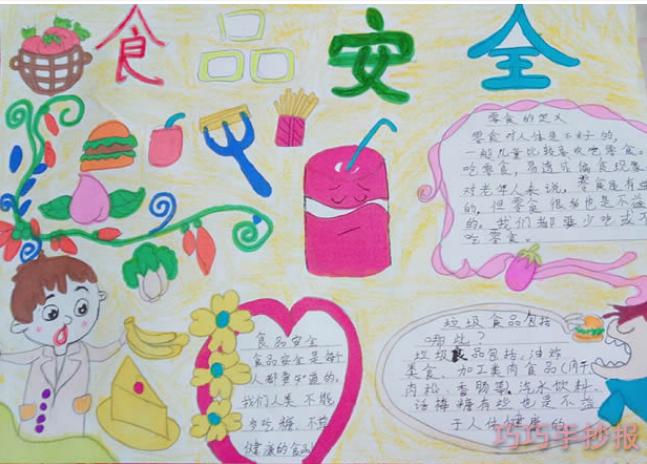 食品安全
零食的定义
零食对人体是不好的,
一般儿童比较喜欢吃零食。
吃零食,易造成偏食现象
对老年人来说,零食是有益
的,但零食很多也是不益
的。我们都要少吃或不
吃零食。
食品安全
食品安全是每个
人都要知道的,
我们人类不能
多吃糖、不益
健康的食品
垃圾食品包括
哪些?
垃圾食品包括:油炸
类食、加工类肉食品(肉干、
肉松、香肠等)、汽水饮料、
话梅糖有些也是不益
于人体健康的
巧巧手抄报